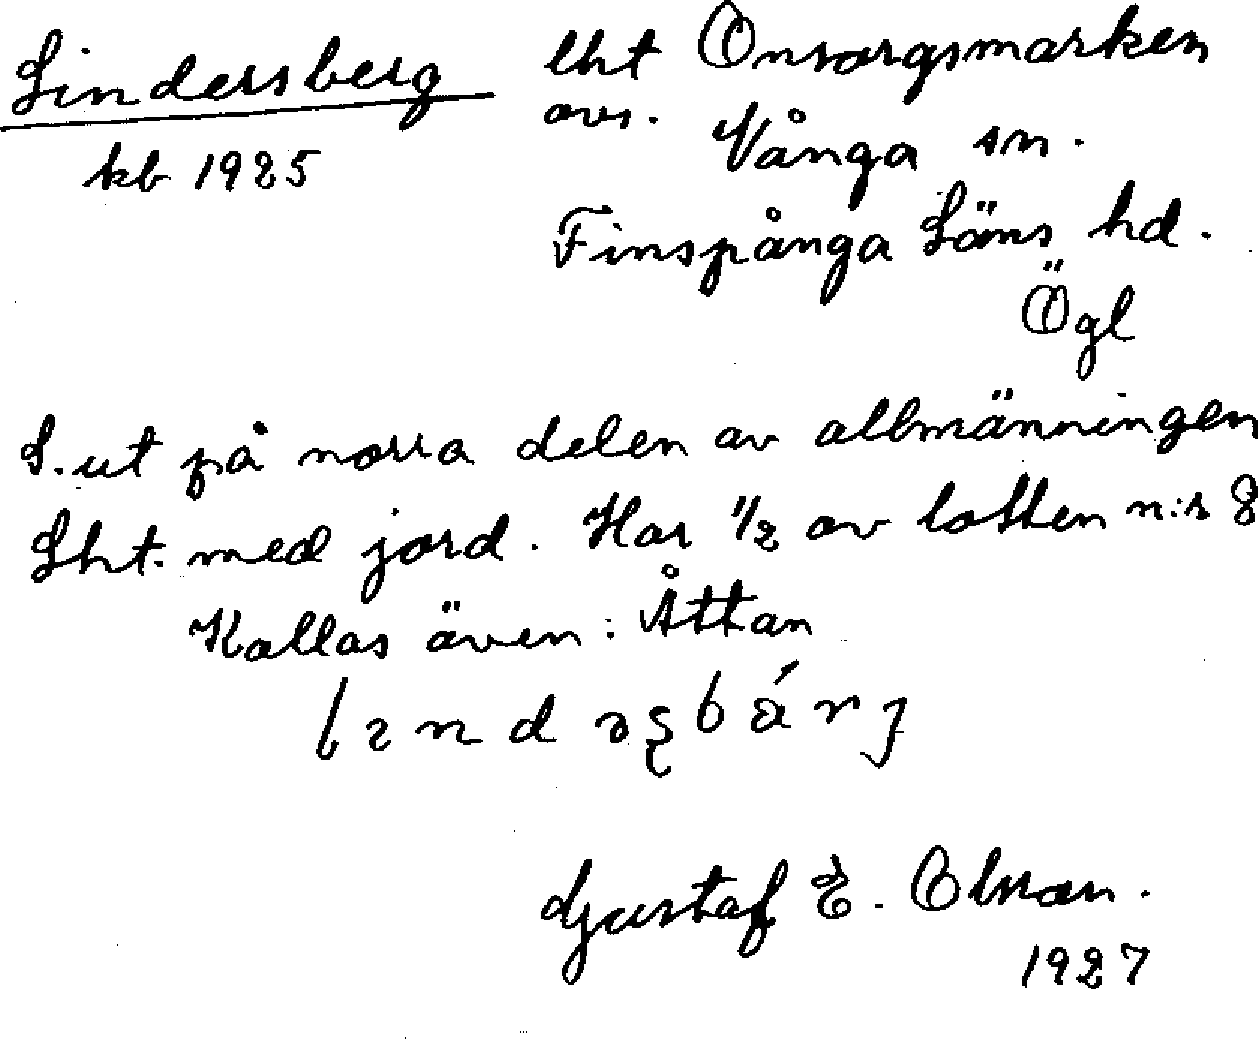 Lindersberg lht Onsorgsmarken
avs.
kb 1925 Vånga sn.
Finspånga Läns hd.
Ögl
L. ut på norra delen av allmänningen
Lht. med jord. Har 1/2 av lotten n:r 8
Kallas även: Åttan
Gustaf E. Olsson.
1927